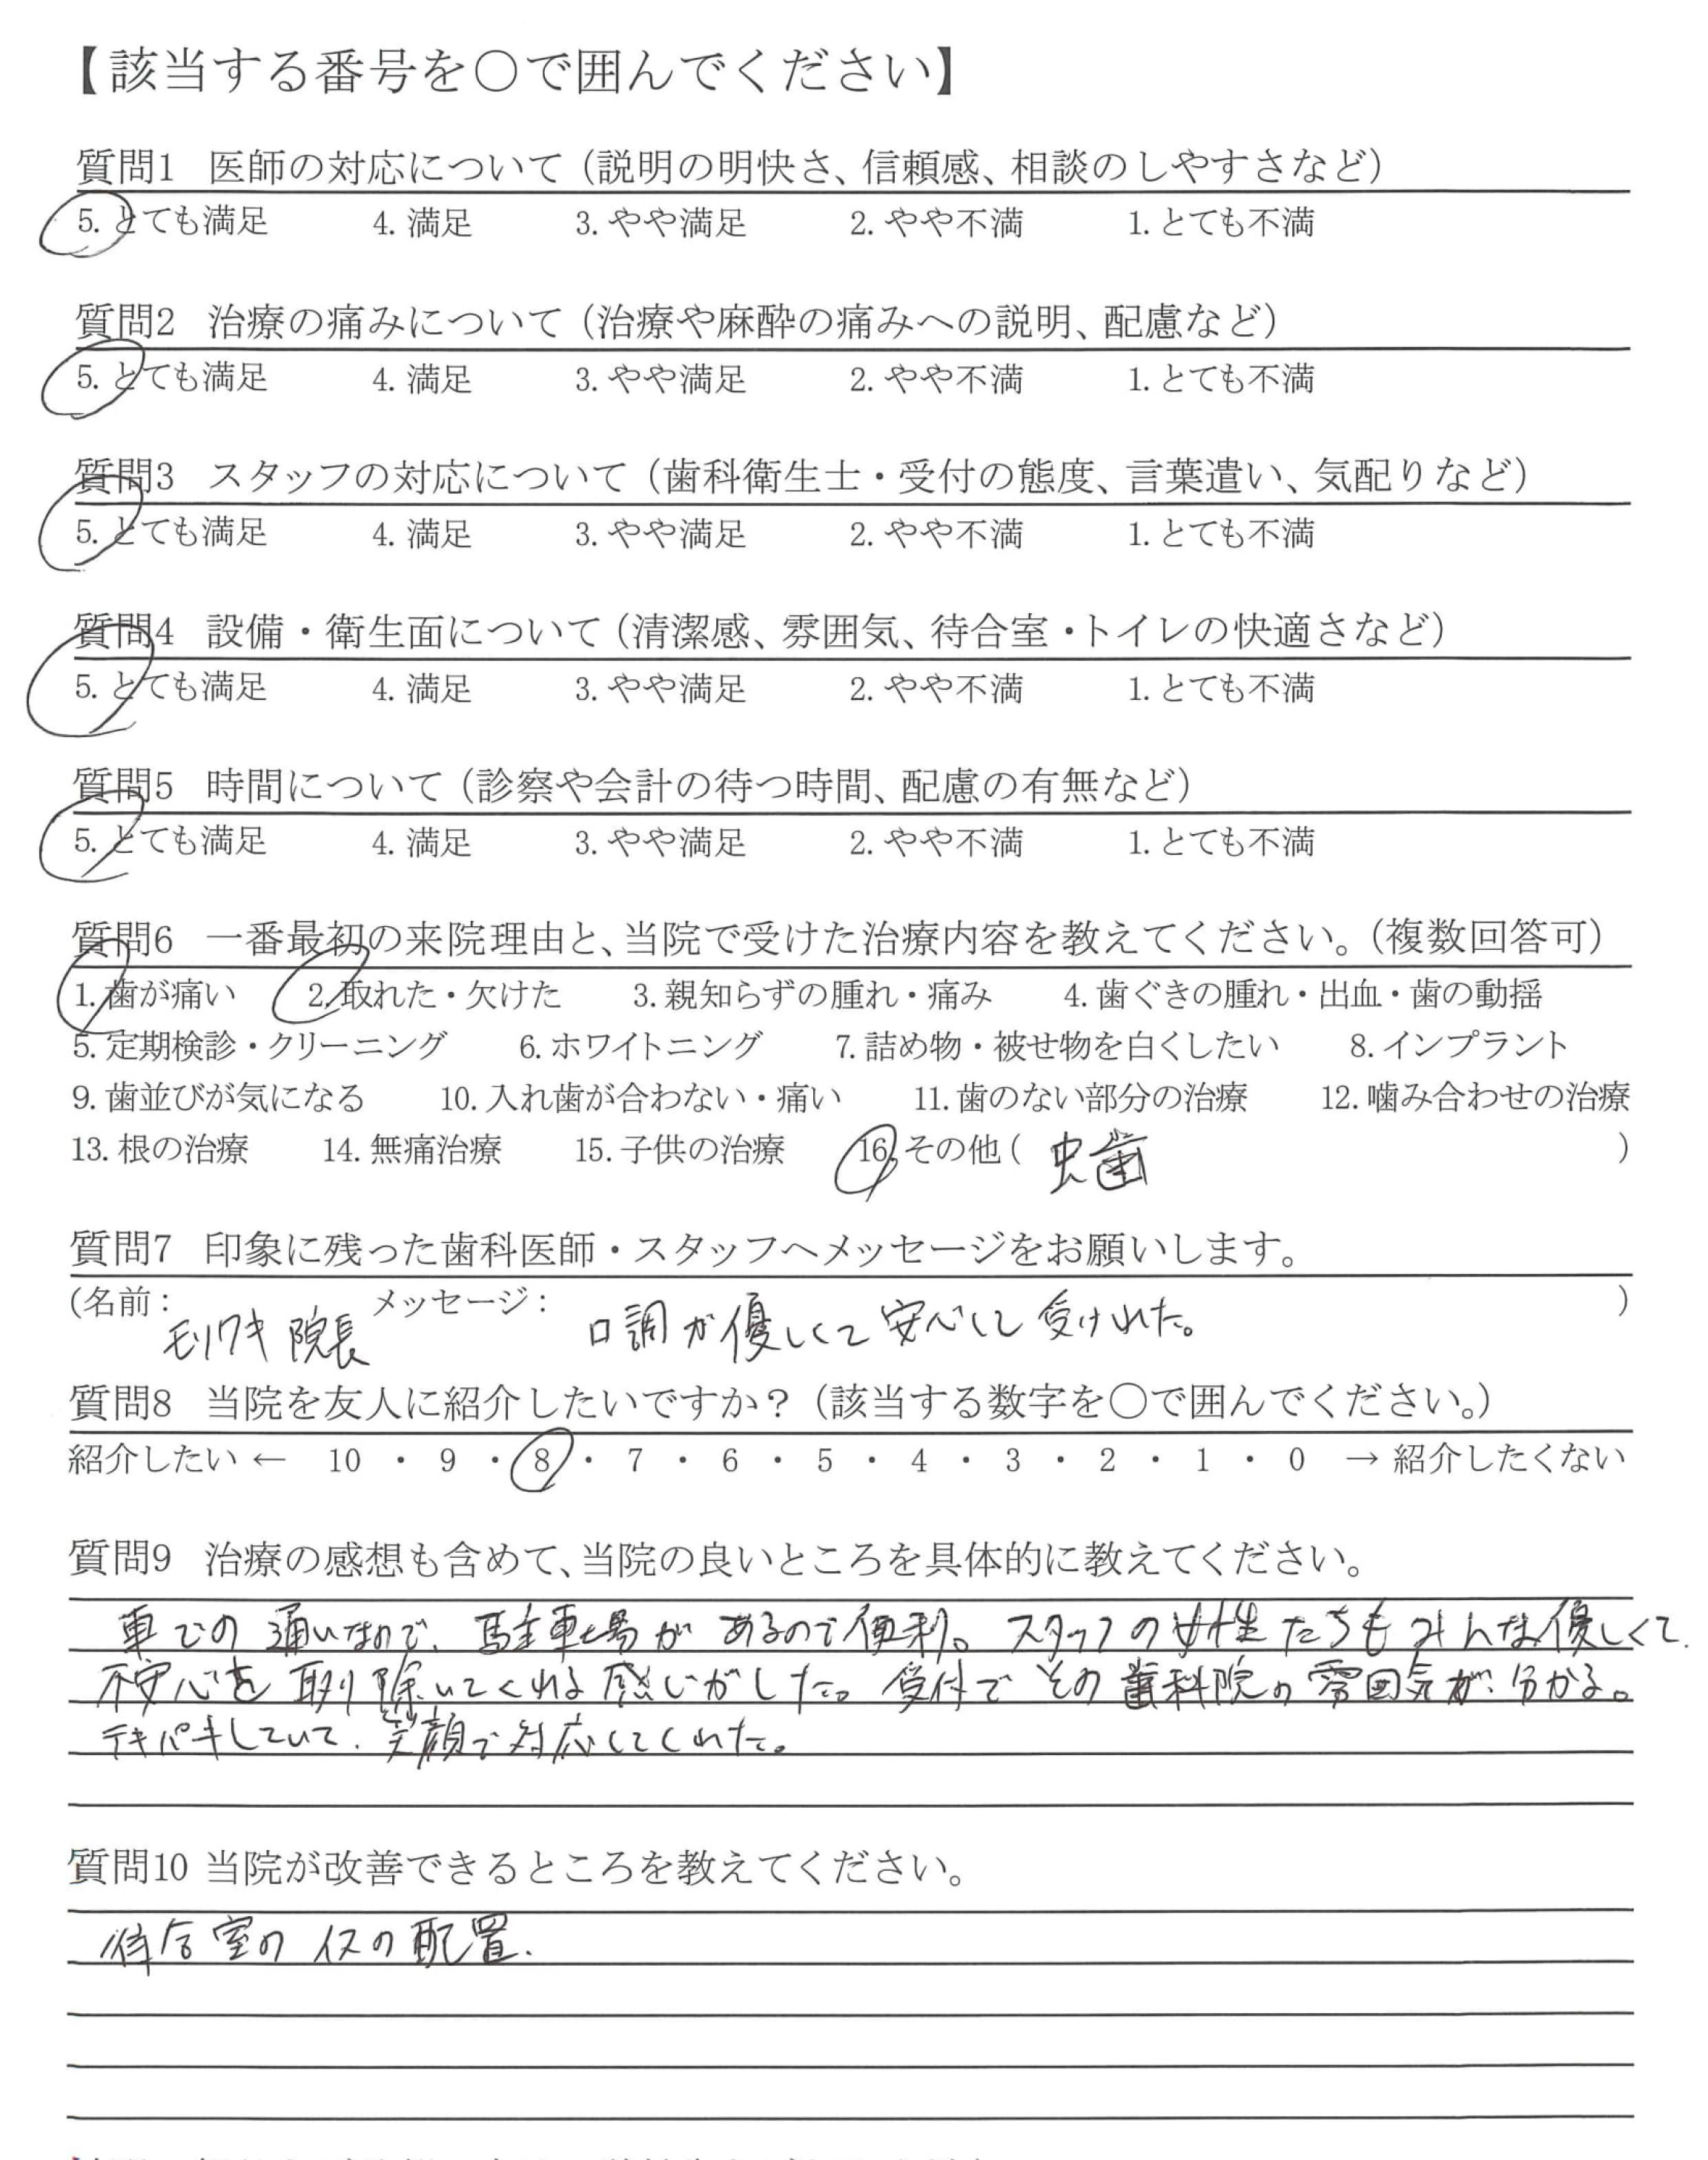 【該当する番号を○で囲んでください】
質問1 医師の対応について（説明の明快さ、信頼感、相談のしやすさなど）
5. とても満足 4. 満足 3. やや満足 2. やや不満 1. とても不満
質問2 治療の痛みについて（治療や麻酔の痛みへの説明、配慮など）
5. とても満足 4. 満足 3. やや満足 2. やや不満 1. とても不満
質問3 スタッフの対応について（歯科衛生士・受付の態度、言葉遣い、気配りなど）
5. とても満足 4. 満足 3. やや満足 2. やや不満 1. とても不満
質問4 設備・衛生面について（清潔感、雰囲気、待合室・トイレの快適さなど）
5. とても満足 4. 満足 3. やや満足 2. やや不満 1. とても不満
質問5 時間について（診察や会計の待つ時間、配慮の有無など）
5. とても満足 4. 満足 3. やや満足 2. やや不満 1. とても不満
質問6 一番最初の来院理由と、当院で受けた治療内容を教えてください。（複数回答可）
1. 歯が痛い 2. 取れた・欠けた 3. 親知らずの腫れ・痛み 4. 歯ぐきの腫れ・出血・歯の動揺
5. 定期検診・クリーニング 6. ホワイトニング 7. 詰め物・被せ物を白くしたい 8. インプラント
9. 歯並びが気になる 10. 入れ歯が合わない・痛い 11. 歯のない部分の治療 12. 噛み合わせの治療
13. 根の治療 14. 無痛治療 15. 子供の治療 16. その他（ 虫歯 ）
質問7 印象に残った歯科医師・スタッフへメッセージをお願いします。
（名前： モリワキ 院長 メッセージ： 口調が優しくて安心して受けれた。 ）
質問8 当院を友人に紹介したいですか？（該当する数字を○で囲んでください。）
紹介したい ← 10 ・ 9 ・ 8 ・ 7 ・ 6 ・ 5 ・ 4 ・ 3 ・ 2 ・ 1 ・ 0 → 紹介したくない
質問9 治療の感想も含めて、当院の良いところを具体的に教えてください。
車での通いなので、駐車場があるので便利。スタッフの女性たちもみんな優しくて、
不安心を取り除いてくれる感じがした。受付でその歯科院の雰囲気が分かる。
テキパキしていて、笑顔で対応してくれた。
質問10 当院が改善できるところを教えてください。
待合室のイスの配置.